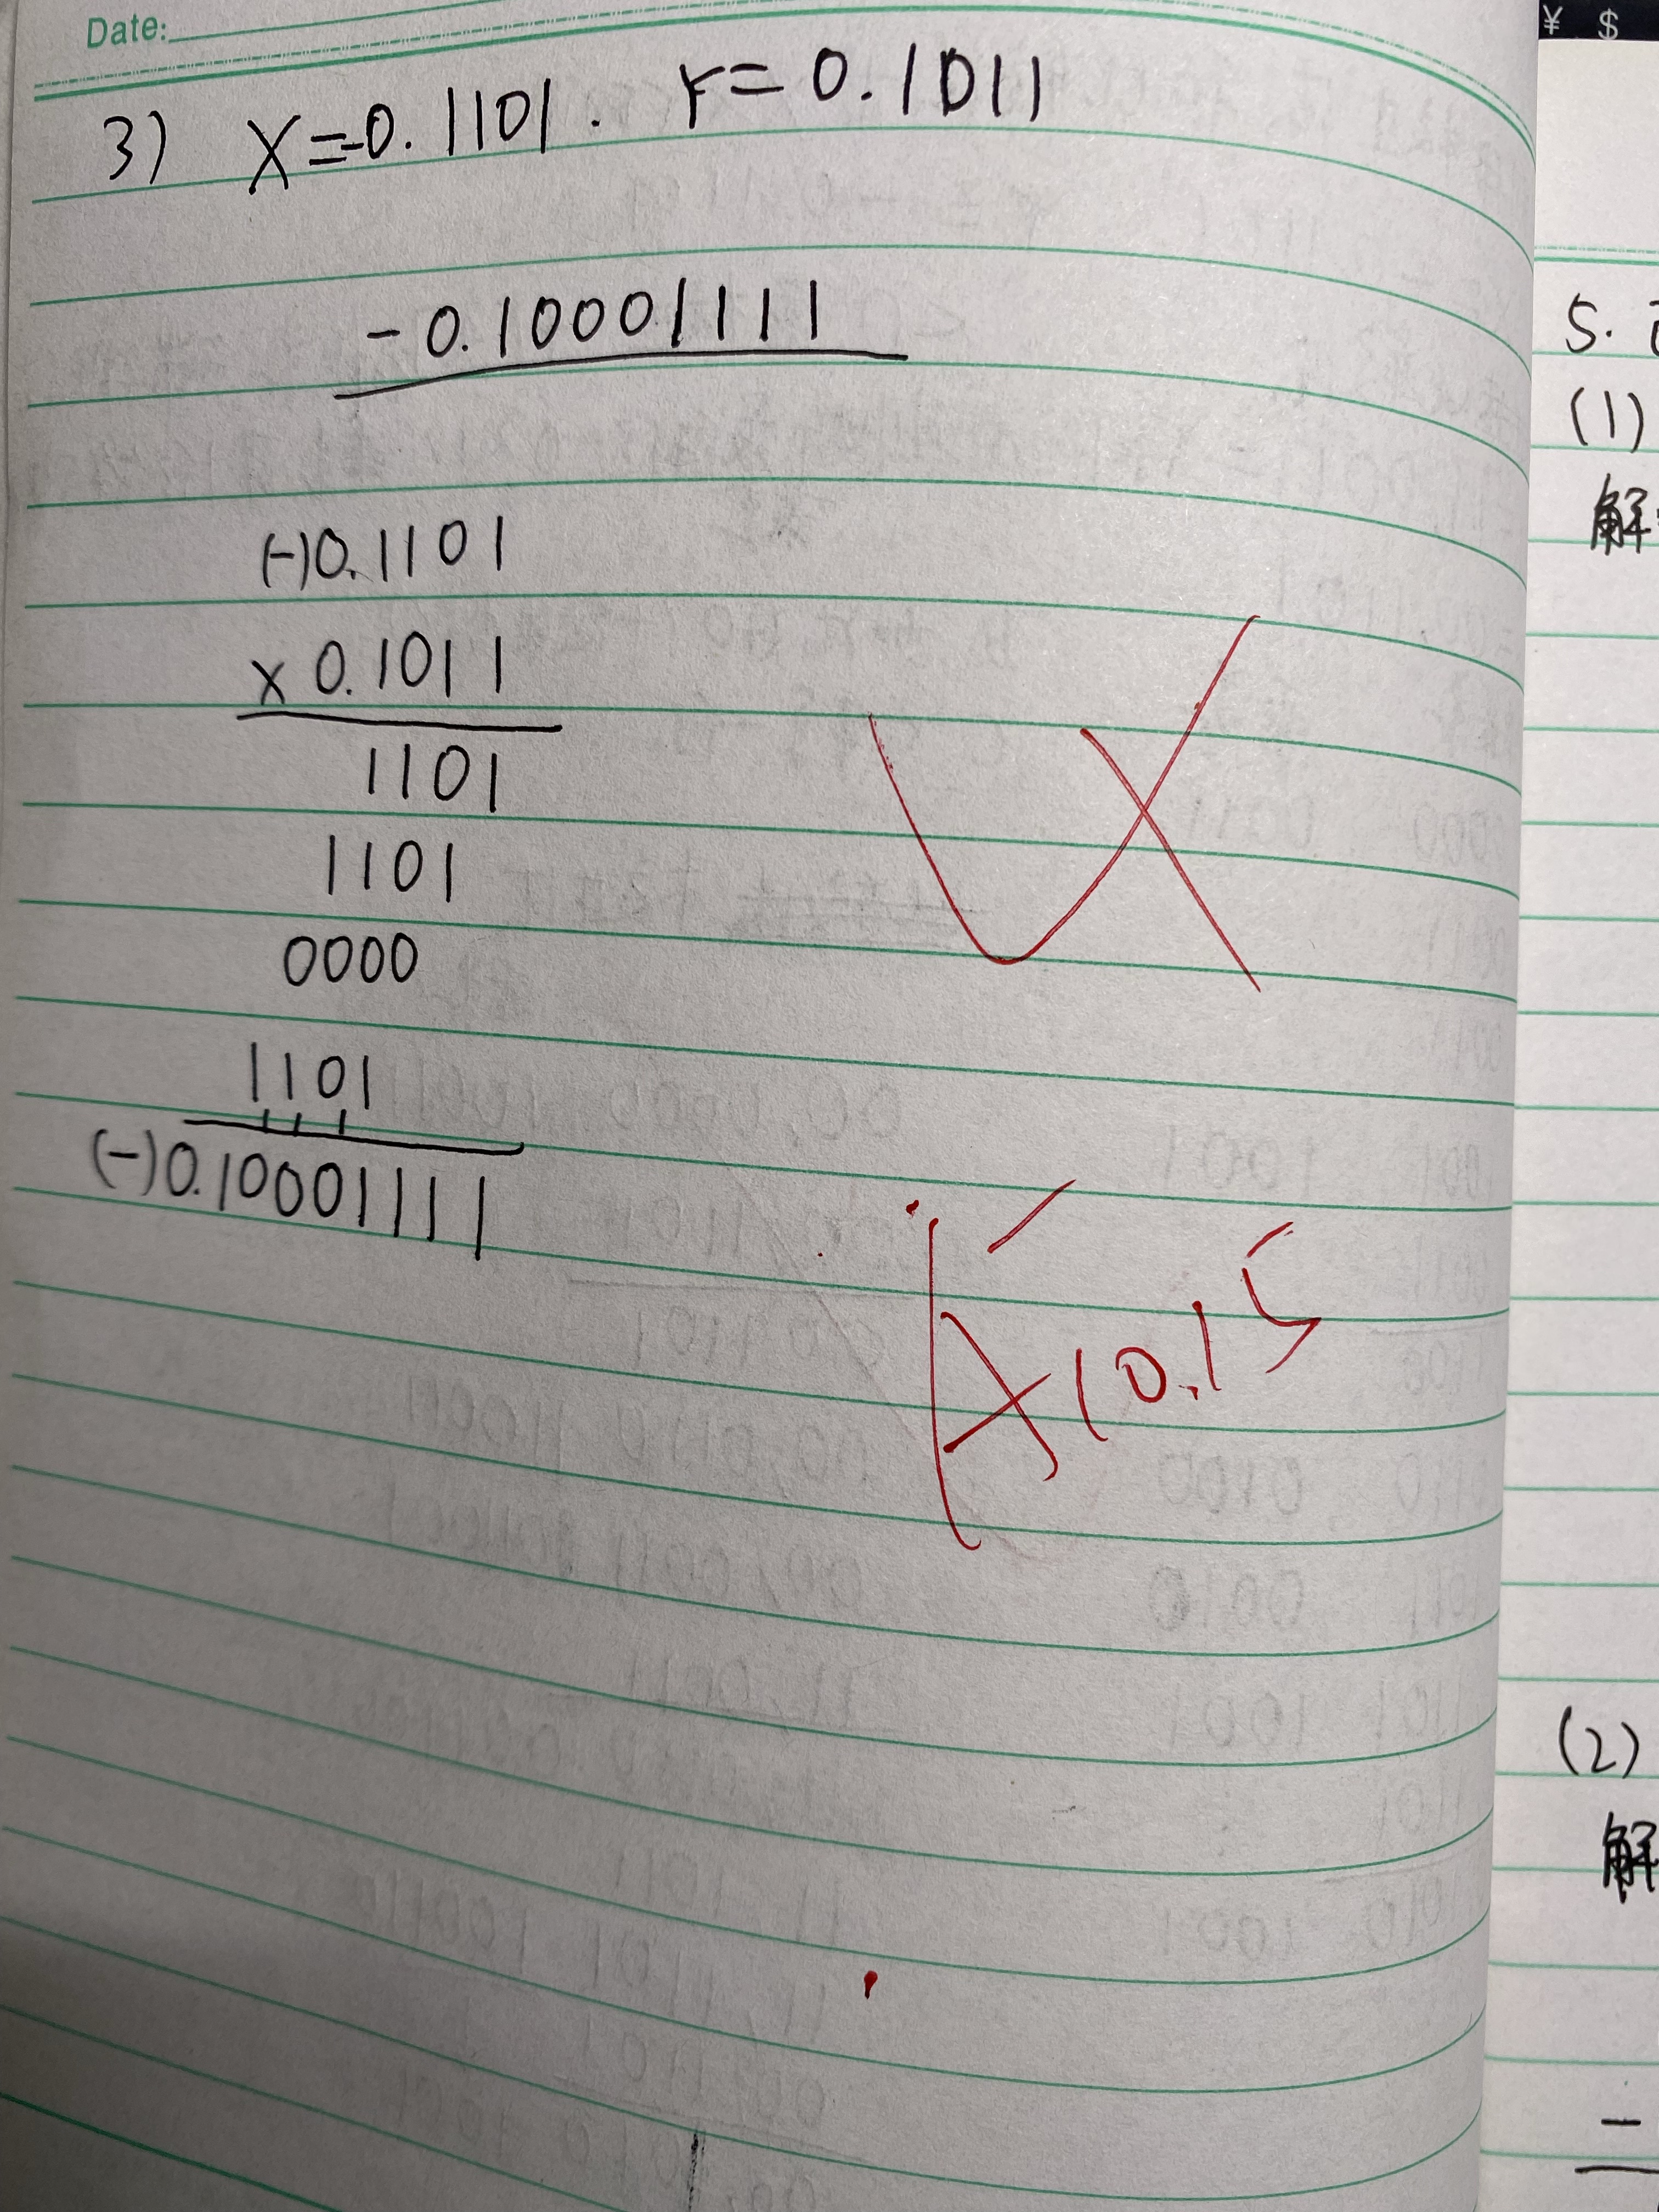 Date:
¥ $
3) X=-0.1101. Y=0.1011
-0.10001111
(-)0.1101
×0.1011
1101
1101
0000
1101
(-)0.10001111
A 10.15
5.
(1)
解:
(2)
解